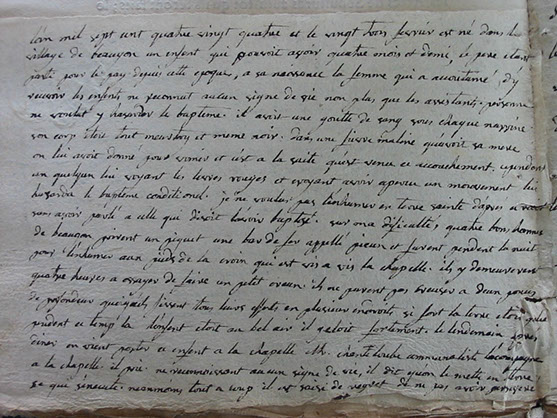 L'an mil sept cent quatre vingt quatre et le vingt trois fevrier est né dans le
village de beaujon un enfant qui pouvoit avoir quatre mois et demi, le pere etant
parti pour le pay depuis cette epoque, a sa naissance la femme qui a accoutumé d'y
recevoir les enfants ne reconnut aucun signe de vie non plus que les assistants, personne
ne voulut y hazarder le bapteme. il avoit une goutte de sang sous chaque narrine
son corp etoit tout meurtry et meme noir. dans une fievre maline qu'avoit sa mere
on lui avoit donné pour vomir et c'est a la suite qu'est venu cet accouchement. cependant
un quelqun lui voyant les levres rouges et croyant avoir apercu un mouvement lui
hazarda le bapteme conditionel. je ne voulus pas l'enhumer en terre sainte d'apres
nous avoir parlé a celle qui disoit l'avoir baptisé. sur ma dificulté, quatre bons hommes
de beaujon prirent un piquet une bar de fer appellé pieux et furent pendent la nuit
pour l'enhumer aux pieds de la croix qui est vis a vis la chapelle. ils y demeurerent
quatre heures a essayer de faire un petit creux. ils ne purent pas creuser a deux pouces
de profondeur quoiqu'ils fissent tous leurs efforts en plusieurs endroits si fort la terre etoit
pendent ce temp la l'enfent etoit au bel air il geloit fortement. le lendemain apres
diner on vient porter cet enfent a la chapelle Mr. communaliste l'acompagne
a la chapelle. il prie. ne reconnoissant aucun signe de vie, il dit qu'on le mette en terre
ce qui s'execute. neanmoins, tout a coup il est saisi de regret de ne pas avoir